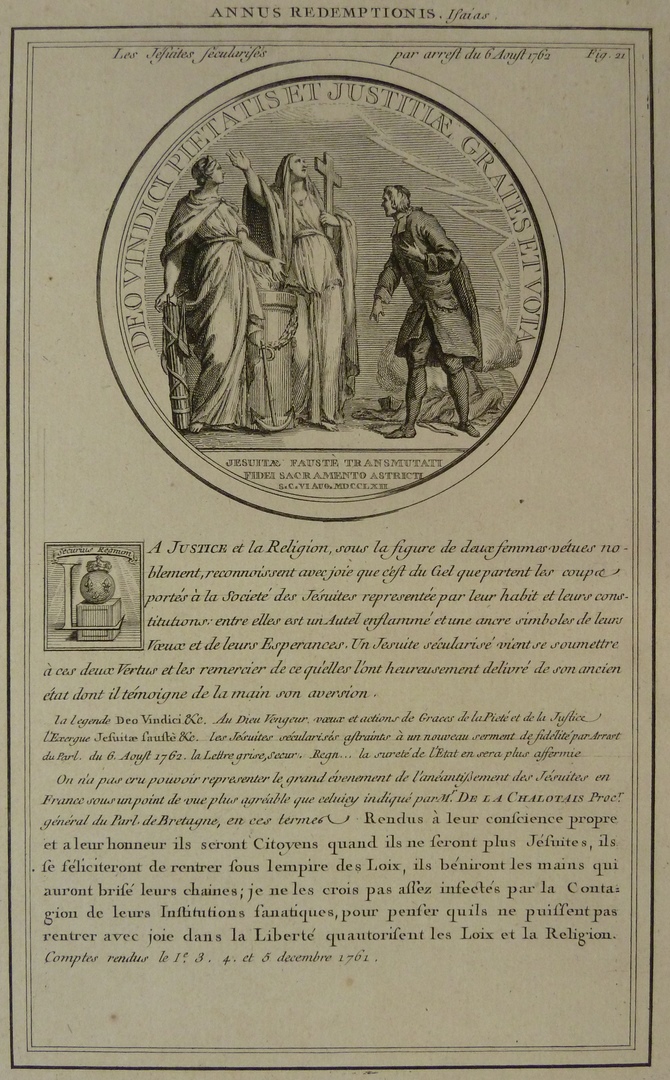 ANNUS REDEMPTIONIS. Isaias.
Les Jésuites sécularisés par arrest du 6 Aoust 1762 Fig. 21
DEO VINDICI PIETATIS ET JUSTITIÆ GRATES ET VOTA
JESUITÆ FAUSTÈ TRANSMUTATI
FIDEI SACRAMENTO ASTRICTI
S.C. VI AUG. MDCCLXII
Securius Regnum
LA JUSTICE et la Religion, sous la figure de deux femmes vétues no-
blement, reconnoissent avec joie que c'est du Ciel que partent les coups
portés à la Societé des Jésuites representée par leur habit et leurs cons-
titutions: entre elles est un Autel enflammé et une ancre simboles de leurs
Vœux et de leurs Esperances. Un Jesuite sécularisé vient se soumettre
à ces deux Vertus et les remercier de ce qu'elles l'ont heureusement delivré de son ancien
état dont il témoigne de la main son aversion.
la Legende Deo Vindici &c. Au Dieu Vengeur, vœux et actions de Graces de la Pieté et de la Justice
l'Exergue Jesuitæ faustè &c. les Jésuites sécularisés astraints à un nouveau serment de fidelité par Arrest
du Parl. du 6. Aoust 1762. la Lettre grise, Secur. Regn... la sureté de l'Etat en sera plus affermie
On n'a pas cru pouvoir representer le grand évenement de l'anéantissement des Jésuites en
France sous un point de vue plus agréable que celuicy indiqué par Mr. DE LA CHALOTAIS Procr.
général du Parl. de Bretagne, en ces termes Rendus à leur conscience propre
et a leur honneur ils seront Citoyens quand ils ne seront plus Jésuites, ils
se féliciteront de rentrer sous lempire des Loix, ils béniront les mains qui
auront brisé leurs chaines; je ne les crois pas assez infectés par la Conta=
gion de leurs Institutions fanatiques, pour penser quils ne puissent pas
rentrer avec joie dans la Liberté quautorisent les Loix et la Religion.
Comptes rendus le 1er. 3. 4. et 5 decembre 1761.